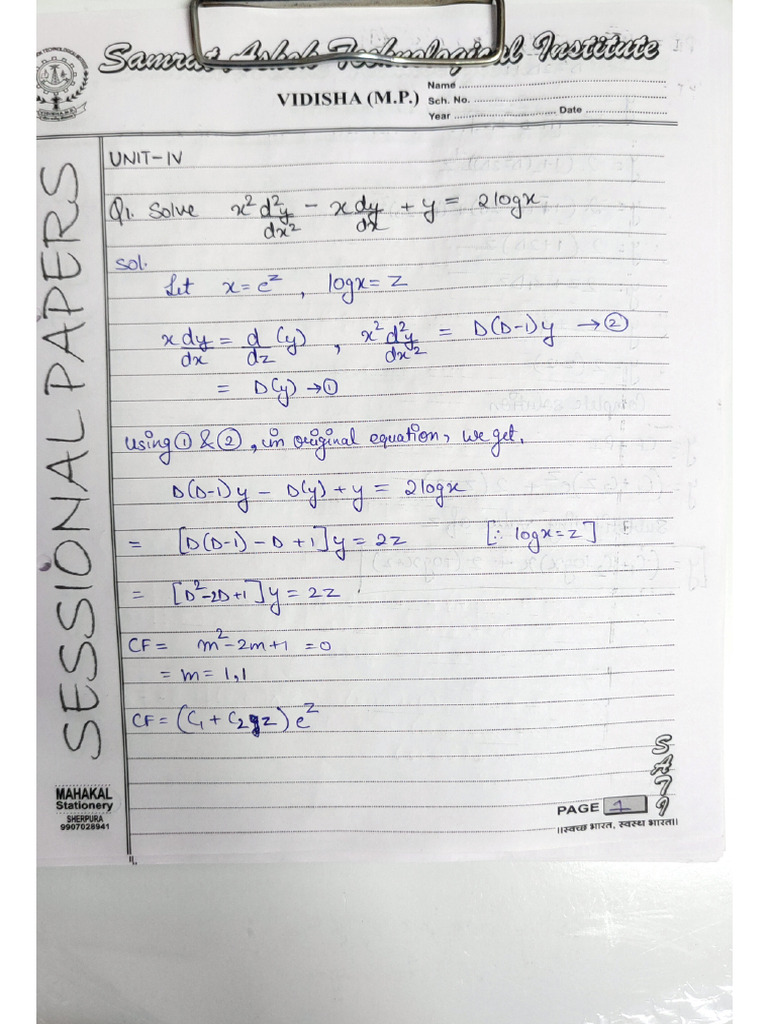 Samrat Ashok Technological Institute
VIDISHA (M.P.)
Name ..........
Sch. No. ..........
Year .......... Date ..........
SESSIONAL PAPERS
UNIT-IV
Q1. Solve x² d²y/dx² - x dy/dx + y = 2logx
Sol.
Let x = e^z , logx = z
x dy/dx = d/dz (y) , x² d²y/dx² = D(D-1)y → ②
= D(y) → ①
using ① & ②, in original equation, we get,
D(D-1)y - D(y) + y = 2logx
= [D(D-1) - D + 1]y = 2z [∵ logx = z]
= [D²-2D+1]y = 2z
CF = m²-2m+1 = 0
= m = 1,1
CF = (C₁ + C₂z) e^z
MAHAKAL
Stationery
SHERPURA
9907028941
SATI
PAGE 1
।।स्वच्छ भारत, स्वस्थ भारत।।